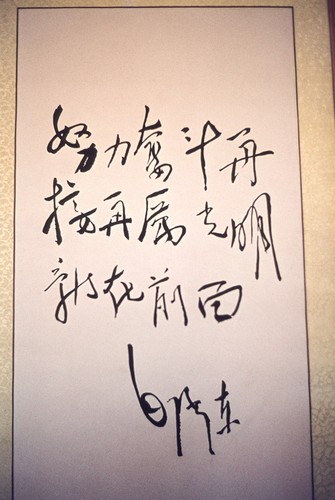 努力奋斗再
接再厉光明
就在前面
白 东